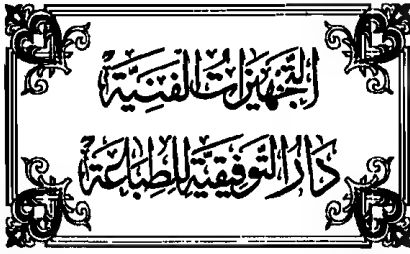 التَّجهِيزَاتُ الفَنِيَّة
دَارُ التَّوفِيقِيَّة لِلطِبَاعَة